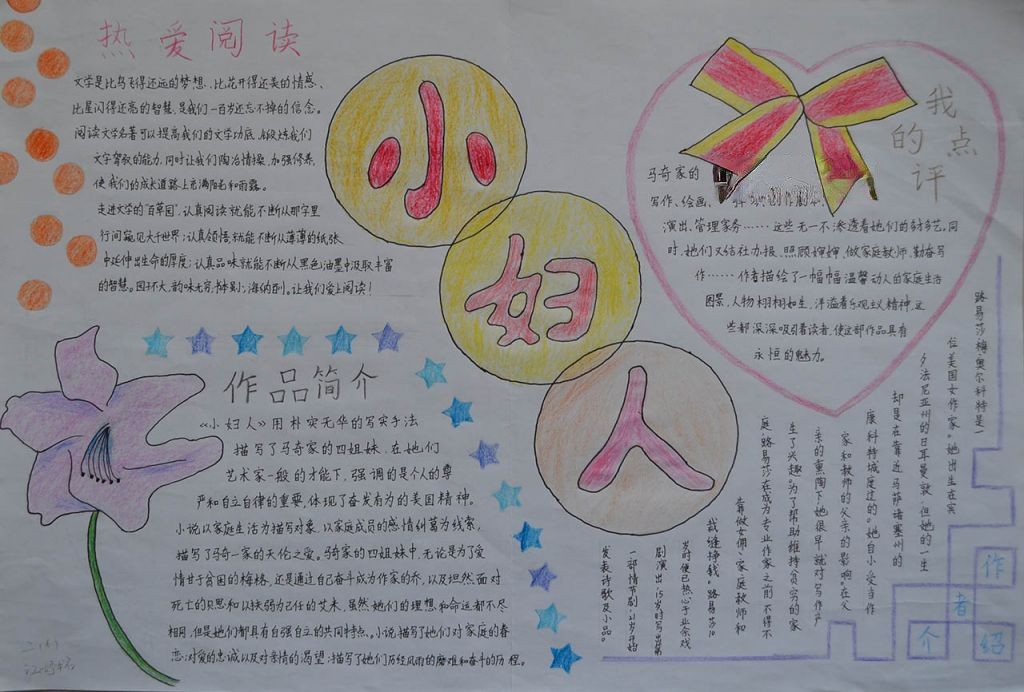 热爱阅读
文学是比鸟飞得还远的梦想、比花开得还美的情感、
比星闪得还亮的智慧,是我们一百岁还忘不掉的信念。
阅读文学名著可以提高我们的文学功底,锻炼我们
文字驾驭的能力,同时让我们陶冶情操,加强修养,
使我们的成长道路上充满阳光和雨露。
走进文学的“百草园”,认真阅读就能不断从那字里
行间窥见大千世界;认真领悟就能不断从薄薄的纸张
中延伸出生命的厚度;认真品味就能不断从黑色油墨中汲取丰富
的智慧。园子不大,韵味无穷,
让我们爱上阅读!
小
妇
人
我的点评
马奇家的
写作、绘画、
演出、管理家务……这些无一不渗透着她们的
同
时,她们又结社办报、照顾婶婶、做家庭教师、勤奋写
作……作者描绘了一幅幅温馨动人的家庭生活
图景,人物栩栩如生,洋溢着乐观主义精神,这
些都深深吸引着读者,使这部作品具有
永恒的魅力。
作品简介
《小妇人》用朴实无华的写实手法
描写了马奇家的四姐妹,在她们
艺术家一般的才能下,强调的是个人的尊
严和自立自律的重要,体现了奋发有为的美国精神。
小说以家庭生活为描写对象,以家庭成员的感情纠葛为线索,
描写了马奇一家的天伦之爱。马奇家的四姐妹中,无论是为了爱
情甘于贫困的梅格,还是通过自己奋斗成为作家的乔,以及坦然面对
死亡的贝思和以扶弱为己任的艾米,虽然她们的理想和命运都不尽
相同,但是她们都具有自强自立的共同特点。小说描写了她们对家庭的眷
恋;对爱的忠诚以及对亲情的渴望;描写了她们历经风雨的磨难和奋斗的历程。
作者介绍
路易莎·梅·奥尔科特是一
位美国女作家。她出生在宾
夕法尼亚州的日耳曼敦,但她的一生
却是在靠近马萨诸塞州的
康科特城度过的。她自小受当作
家和教师的父亲的影响。在父
亲的熏陶下她很早就对写作产
生了兴趣。为了帮助维持贫穷的家
庭,路易莎在成为专业作家之前,不得不
靠做女佣、家庭教师和
裁缝挣钱。路易莎10
岁时便已热心于业余戏
剧演出,15岁时写出第
一部情节剧,21岁开始
发表诗歌及小品。